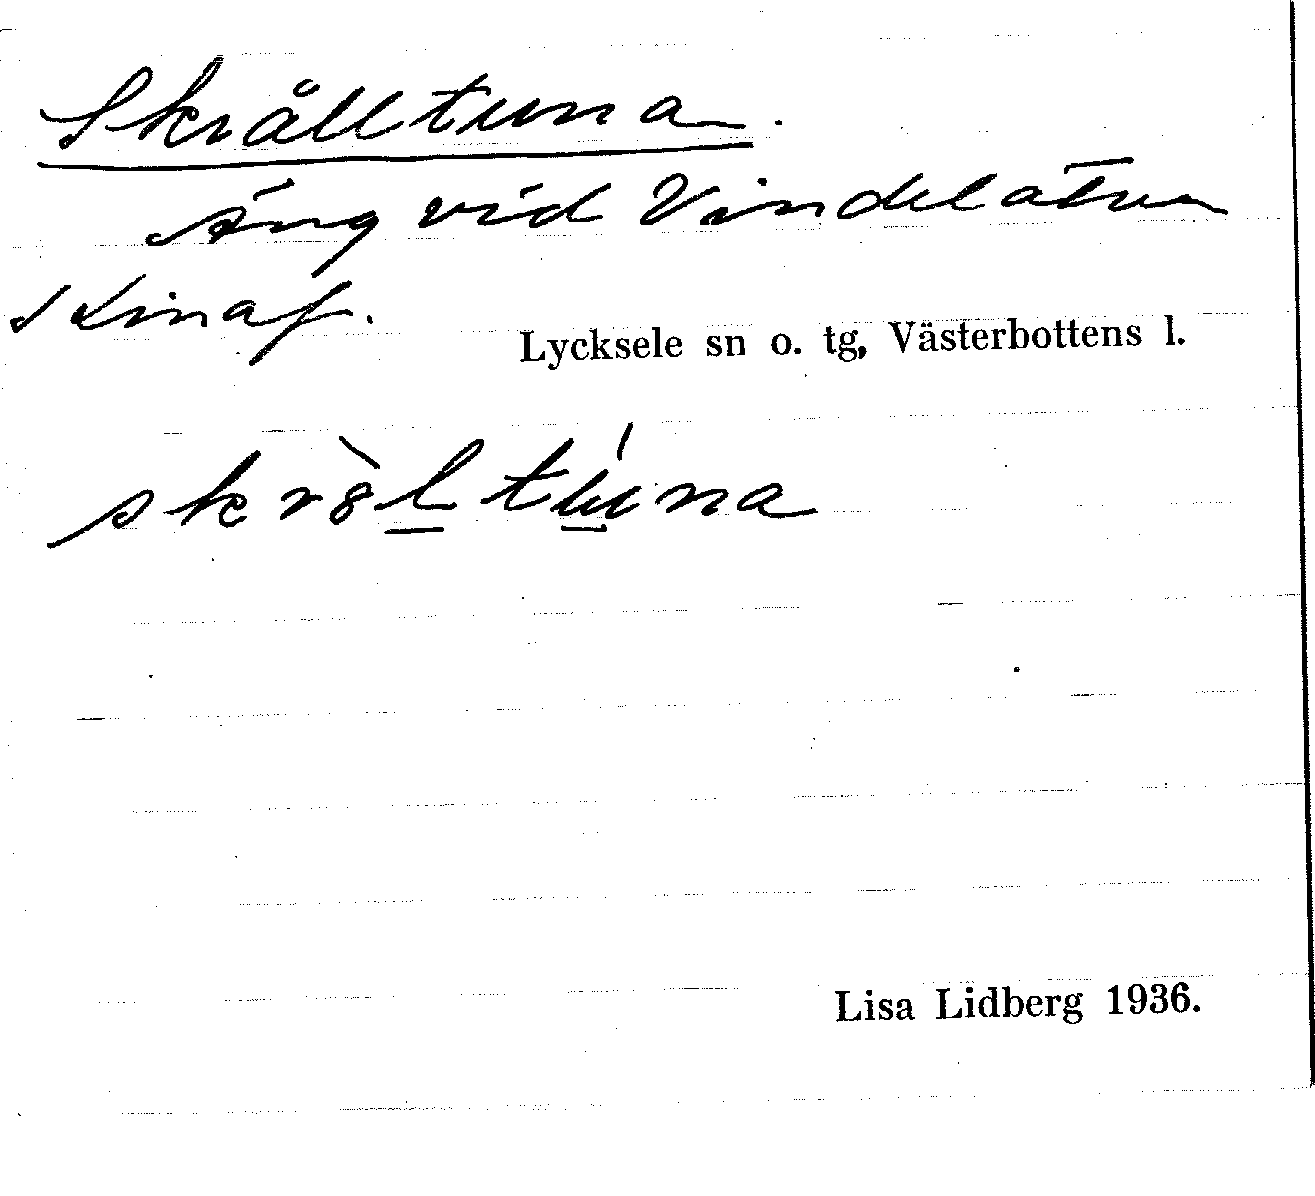 Skrålltuna.
äng vid Vindelälven
Lycksele sn o. tg, Västerbottens l.
skròltúna
Lisa Lidberg 1936.